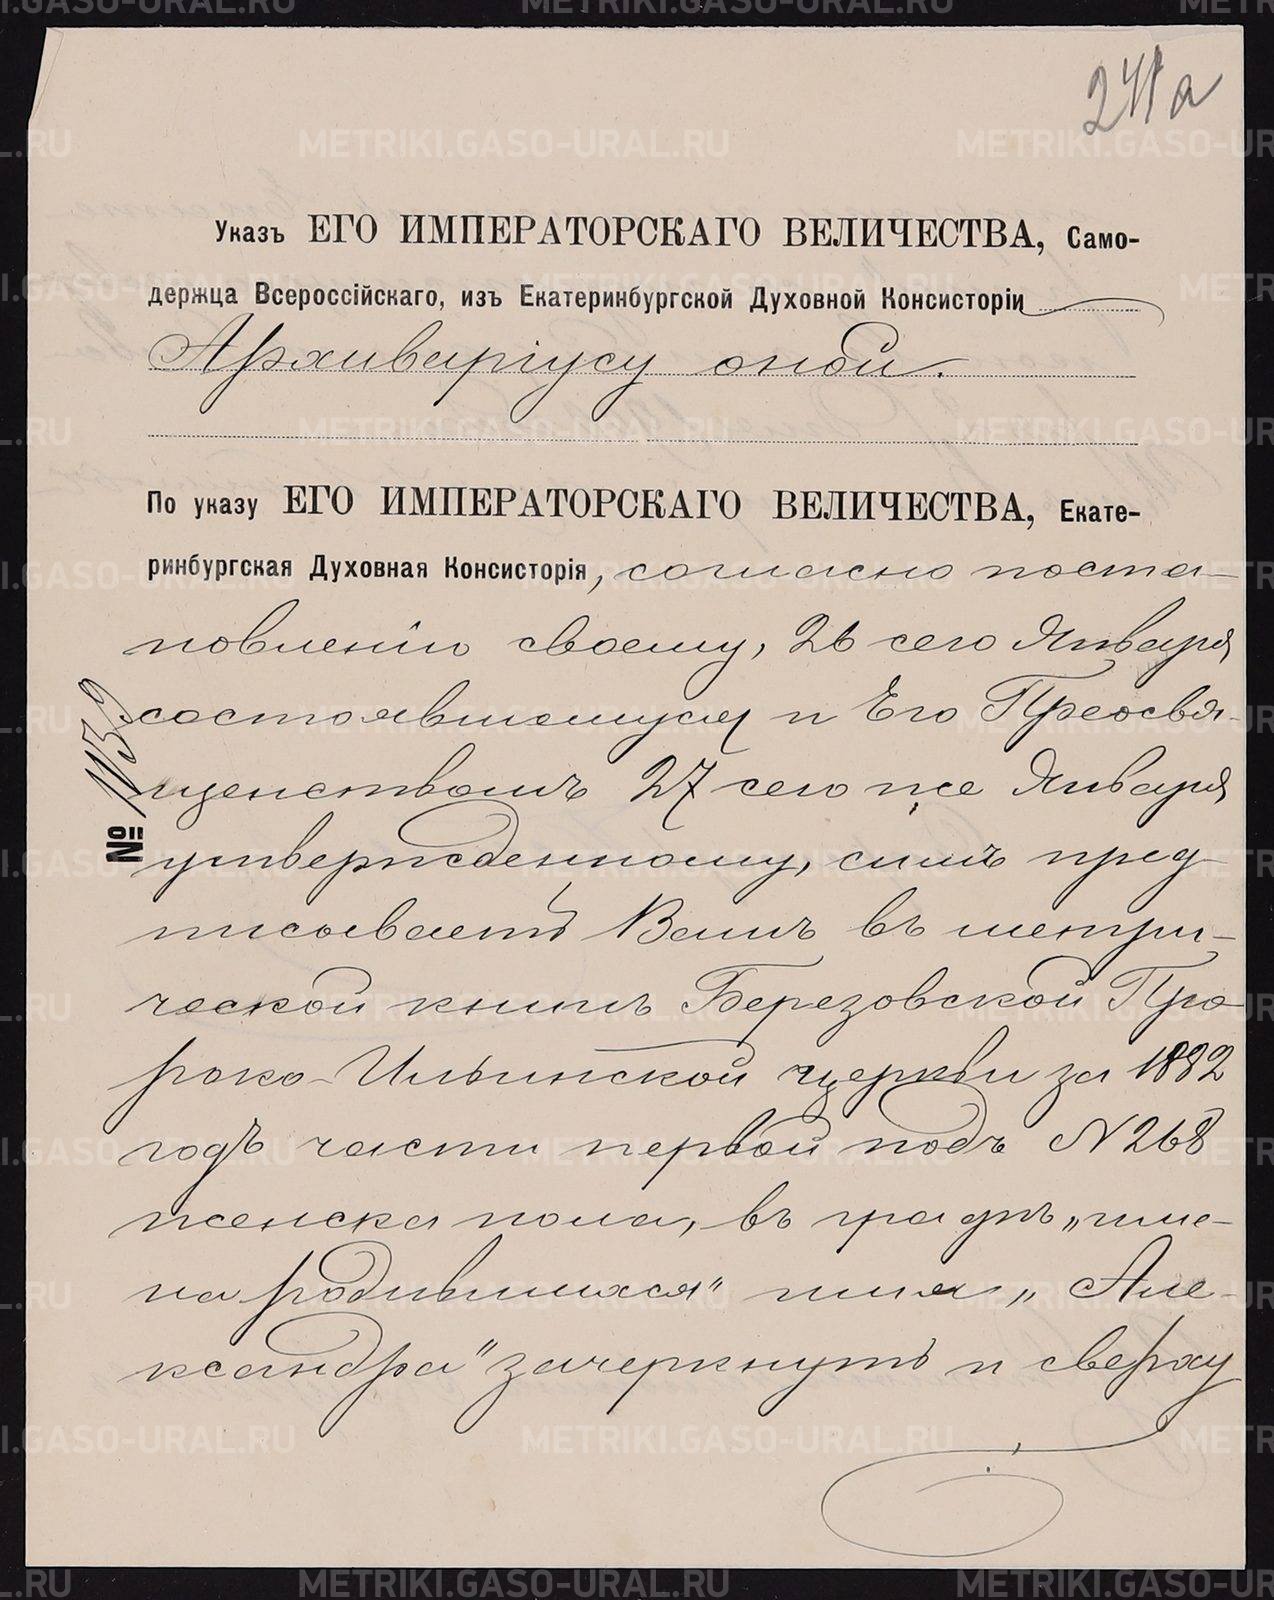 241а
Указъ ЕГО ИМПЕРАТОРСКАГО ВЕЛИЧЕСТВА, Само-
держца Всероссійскаго, изъ Екатеринбургской Духовной Консисторіи
Архиваріусу оной.
По указу ЕГО ИМПЕРАТОРСКАГО ВЕЛИЧЕСТВА, Екате-
ринбургская Духовная Консисторія, согласно поста-
новленію своему, 26 сего Января
состоявшемуся и Его Преосвя-
щенствомъ 27 сего же Января
№ 1153
утвержденному, симъ пред-
писываетъ Вамъ въ метри-
ческой книгѣ Березовской Про-
роко-Ильинской церкви за 1882
годъ части первой подъ № 268
женска пола, въ графѣ „име-
на родившихся" имя „Але-
ксандра" зачеркнуть и сверху
METRIKI.GASO-URAL.RU